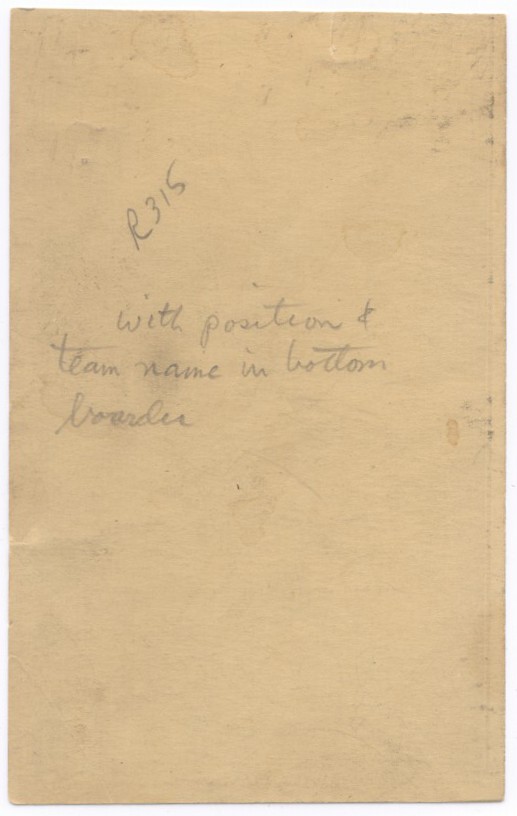 R315
with position &
team name in bottom
boarder